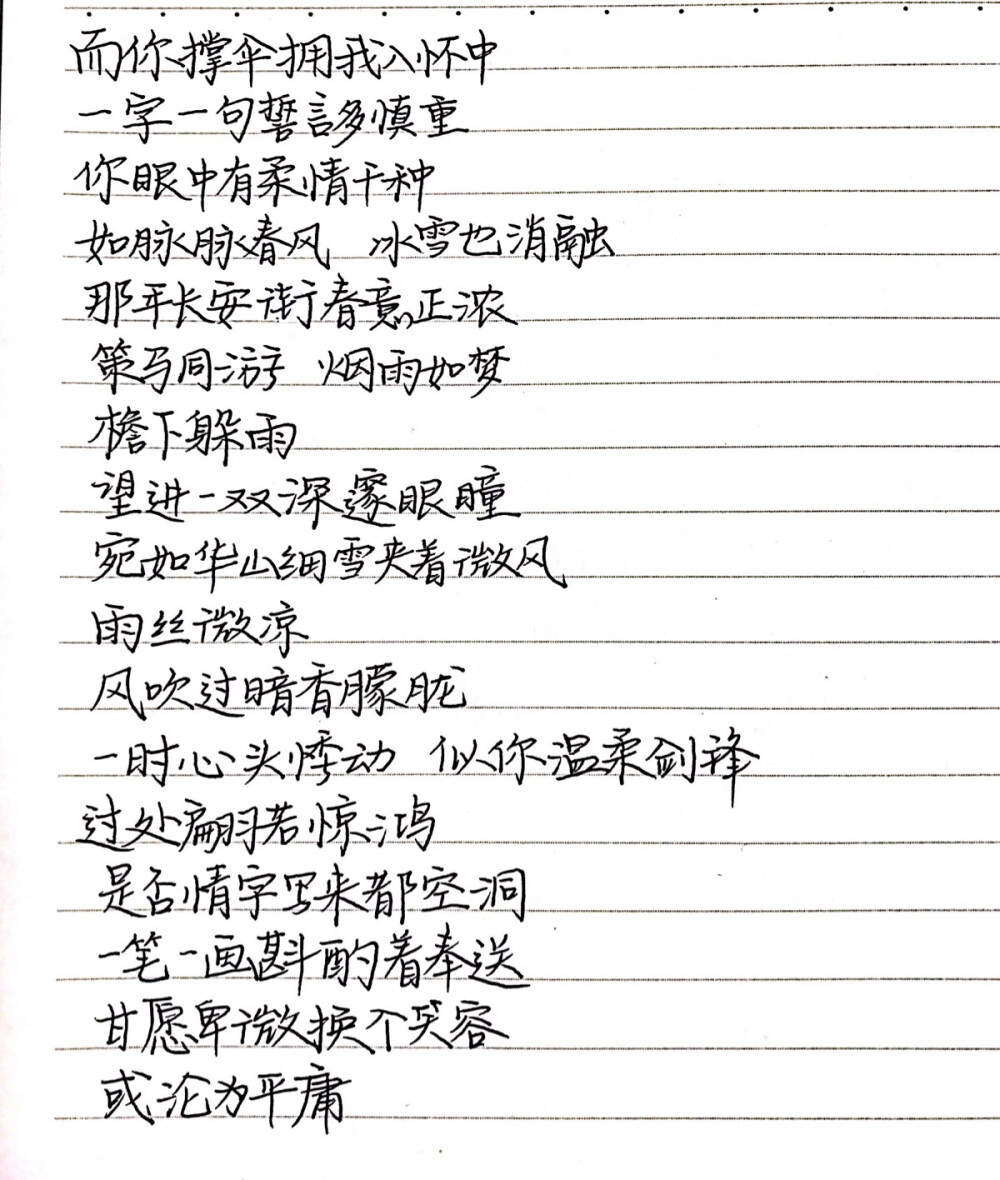 而你撑伞拥我入怀中
一字一句誓言多慎重
你眼中有柔情千种
如脉脉春风 冰雪也消融
那年长安街春意正浓
策马同游 烟雨如梦
檐下躲雨
望进一双深邃眼瞳
宛如华山细雪夹着微风
雨丝微凉
风吹过暗香朦胧
一时心头悸动 似你温柔剑锋
过处翩若惊鸿
是否情字写来都空洞
一笔一画斟酌着奉送
甘愿卑微换个笑容
或沦为平庸